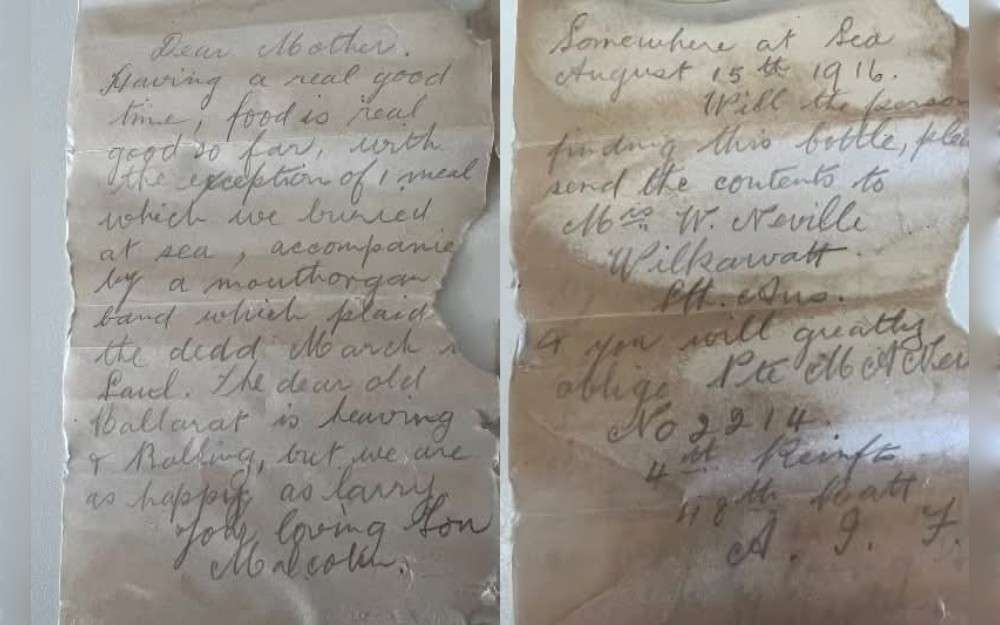 Dear Mother.
Having a real good
time, food is real
good so far, with
the exception of 1 meal
which we buried
at sea, accompanie
by a mouthorgan
band which plaid
the dedd March
Saul. The dear old
Ballarat is heaving
& Rolling, but we are
as happy as larry
Your loving Son
Malcolm.
Somewhere at Sea
August 15th 1916.
Will the person
finding this bottle, plea
send the contents to
Mrs W. Neville
Wilkawatt
Sth. Aus.
& you will greatly
oblige Pte M A Nev
No 2214
4th Reinfts
48th Batt
A. I. F.